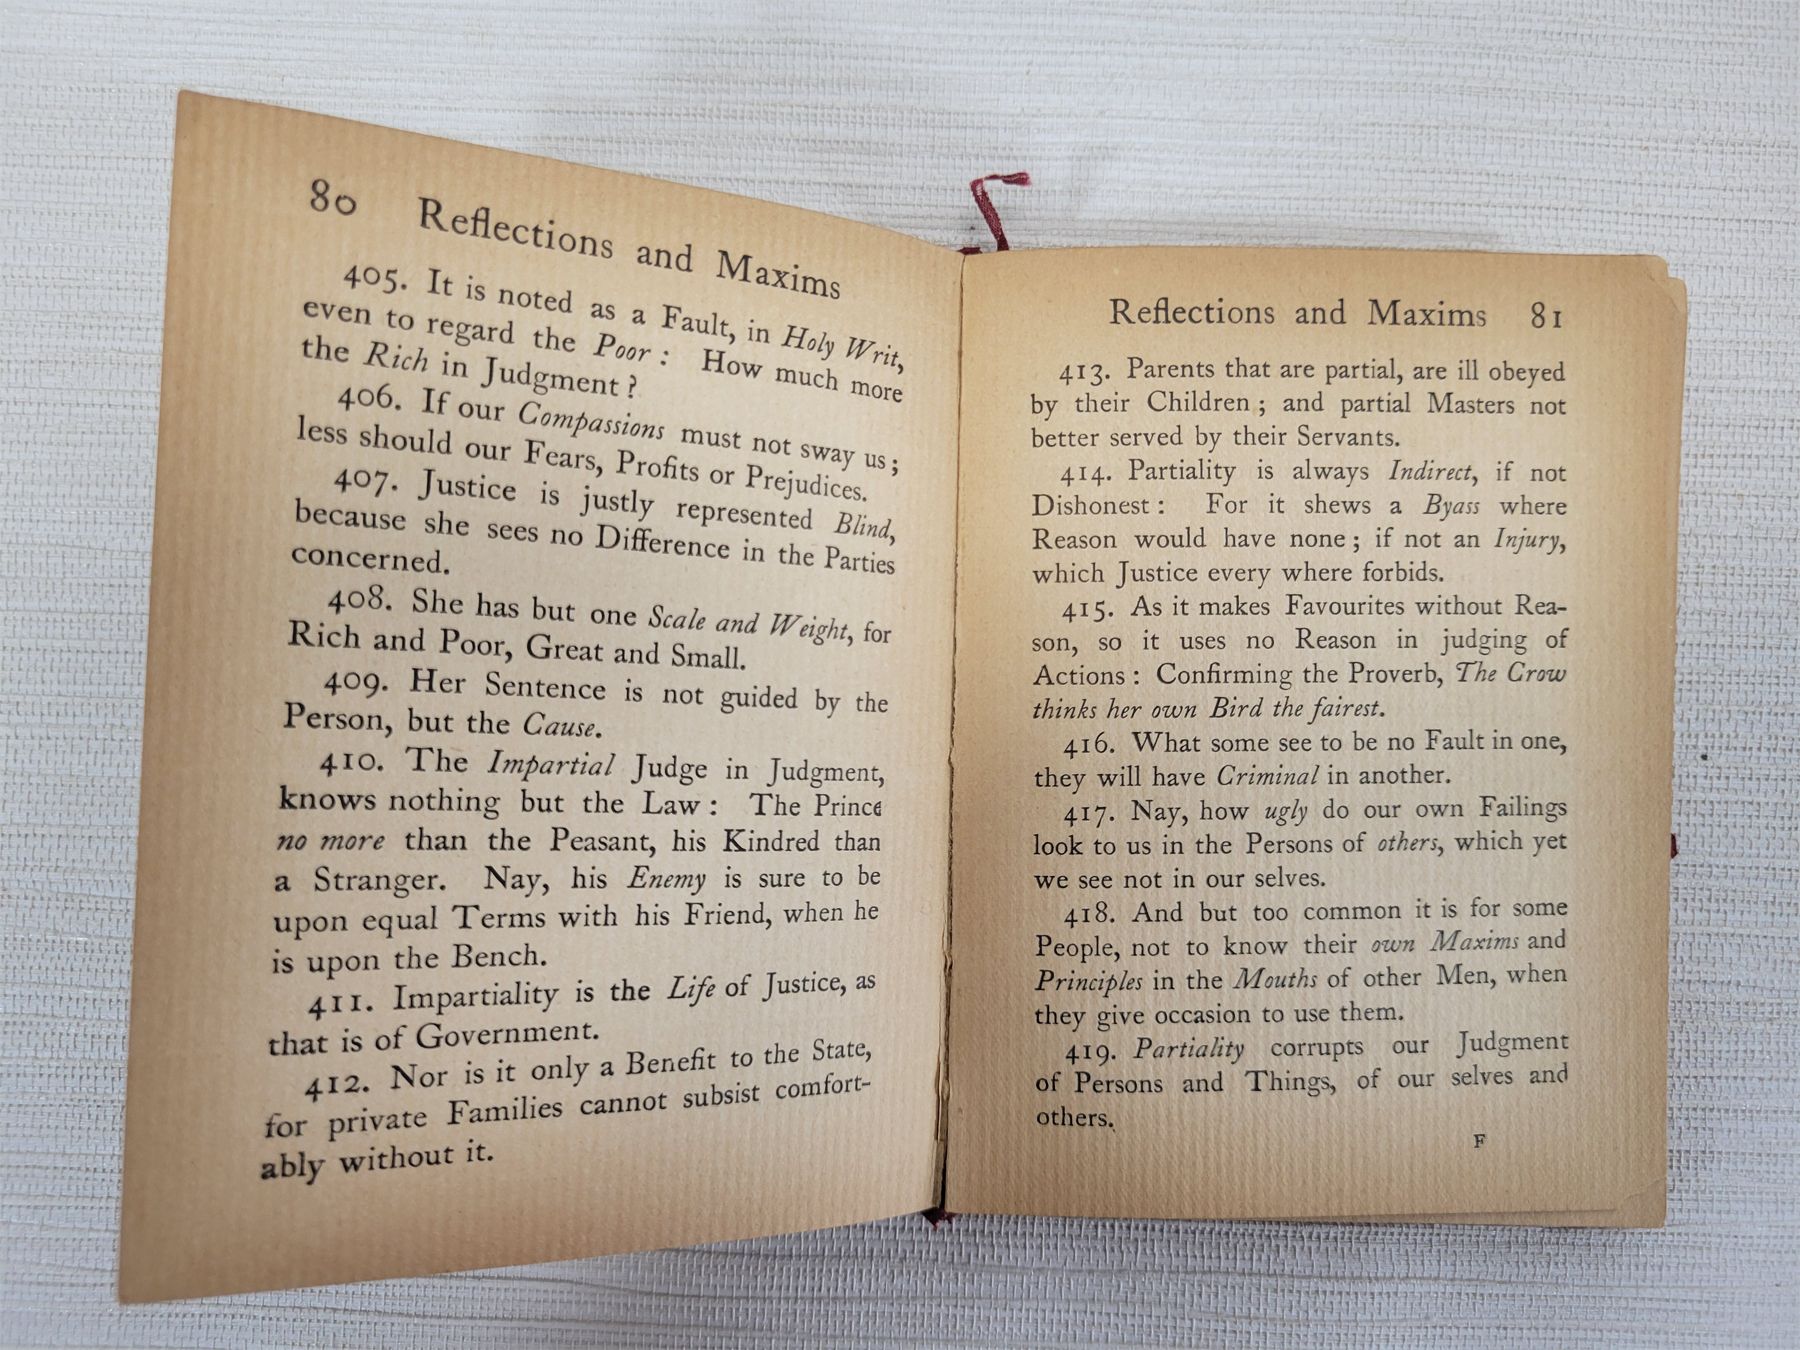 80 Reflections and Maxims
405. It is noted as a Fault, in Holy Writ,
even to regard the Poor : How much more
the Rich in Judgment ?
406. If our Compassions must not sway us ;
less should our Fears, Profits or Prejudices.
407. Justice is justly represented Blind,
because she sees no Difference in the Parties
concerned.
408. She has but one Scale and Weight, for
Rich and Poor, Great and Small.
409. Her Sentence is not guided by the
Person, but the Cause.
410. The Impartial Judge in Judgment,
knows nothing but the Law : The Prince
no more than the Peasant, his Kindred than
a Stranger. Nay, his Enemy is sure to be
upon equal Terms with his Friend, when he
is upon the Bench.
411. Impartiality is the Life of Justice, as
that is of Government.
412. Nor is it only a Benefit to the State,
for private Families cannot subsist comfort-
ably without it.
Reflections and Maxims 81
413. Parents that are partial, are ill obeyed
by their Children ; and partial Masters not
better served by their Servants.
414. Partiality is always Indirect, if not
Dishonest : For it shews a Byass where
Reason would have none ; if not an Injury,
which Justice every where forbids.
415. As it makes Favourites without Rea-
son, so it uses no Reason in judging of
Actions : Confirming the Proverb, The Crow
thinks her own Bird the fairest.
416. What some see to be no Fault in one,
they will have Criminal in another.
417. Nay, how ugly do our own Failings
look to us in the Persons of others, which yet
we see not in our selves.
418. And but too common it is for some
People, not to know their own Maxims and
Principles in the Mouths of other Men, when
they give occasion to use them.
419. Partiality corrupts our Judgment
of Persons and Things, of our selves and
others.
F